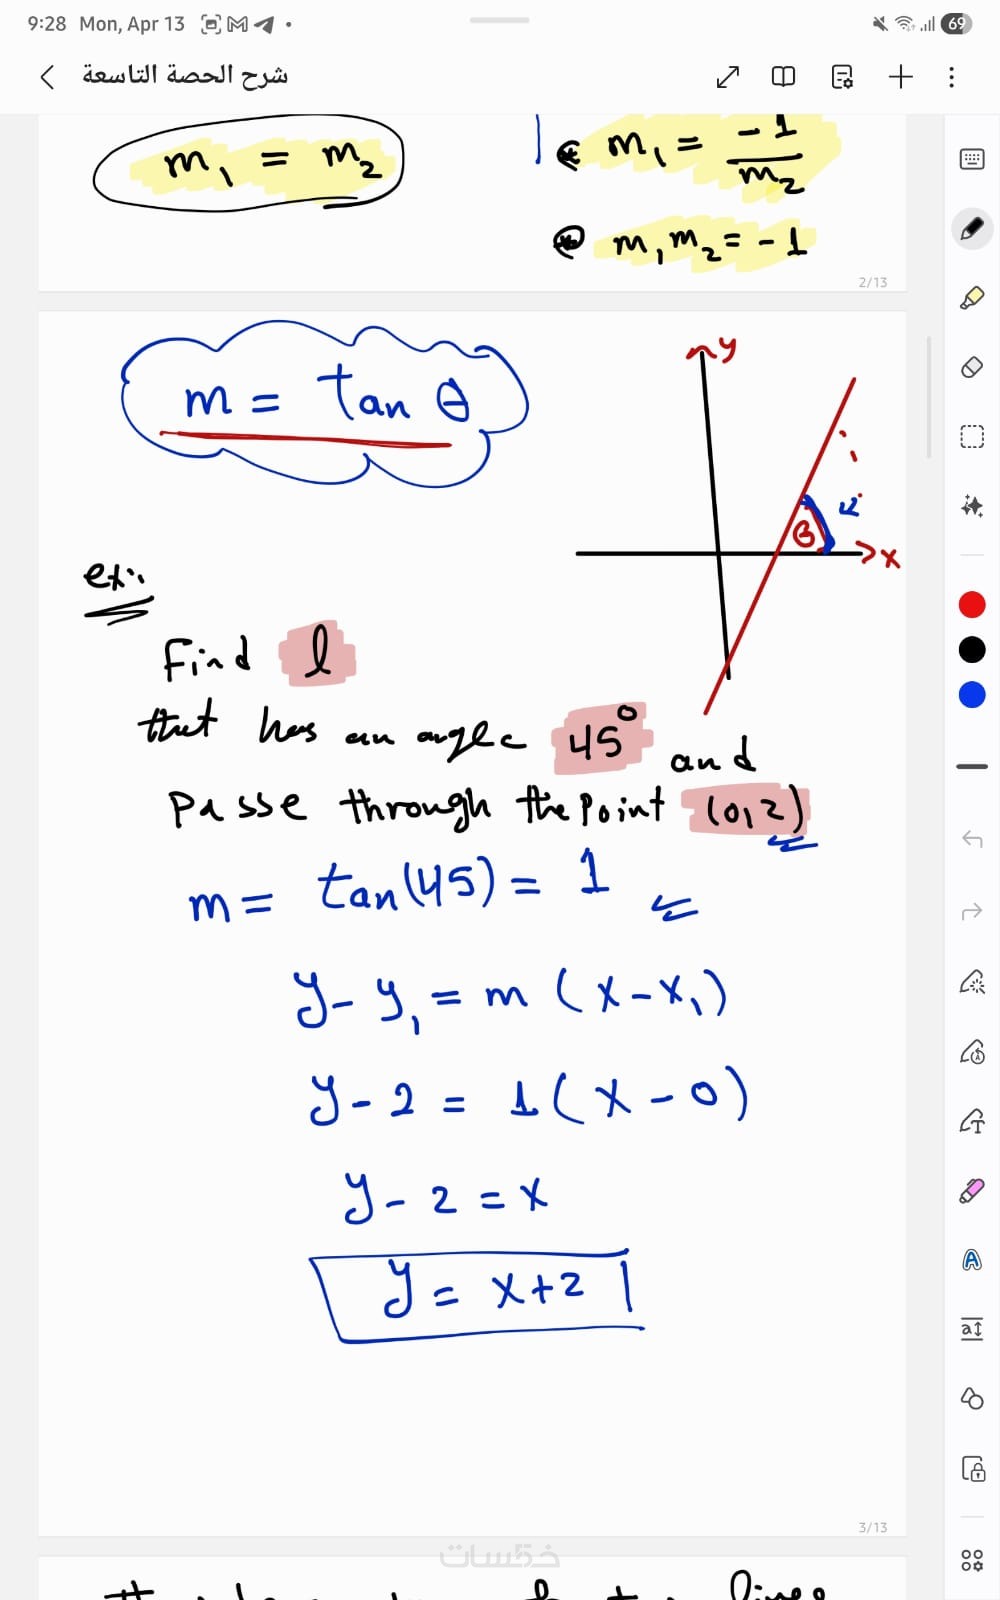 9:28 Mon, Apr 13
69
شرح الحصة التاسعة
m₁ = m₂
m₁ = -1/m₂
m₁m₂ = -1
2/13
m = tan θ
y
θ
x
ex:
Find l
that has an angle 45° and
Passe through the point (0,2)
m = tan(45) = 1
y - y₁ = m (x - x₁)
y - 2 = 1(x - 0)
y - 2 = x
y = x+2
3/13
خمسات